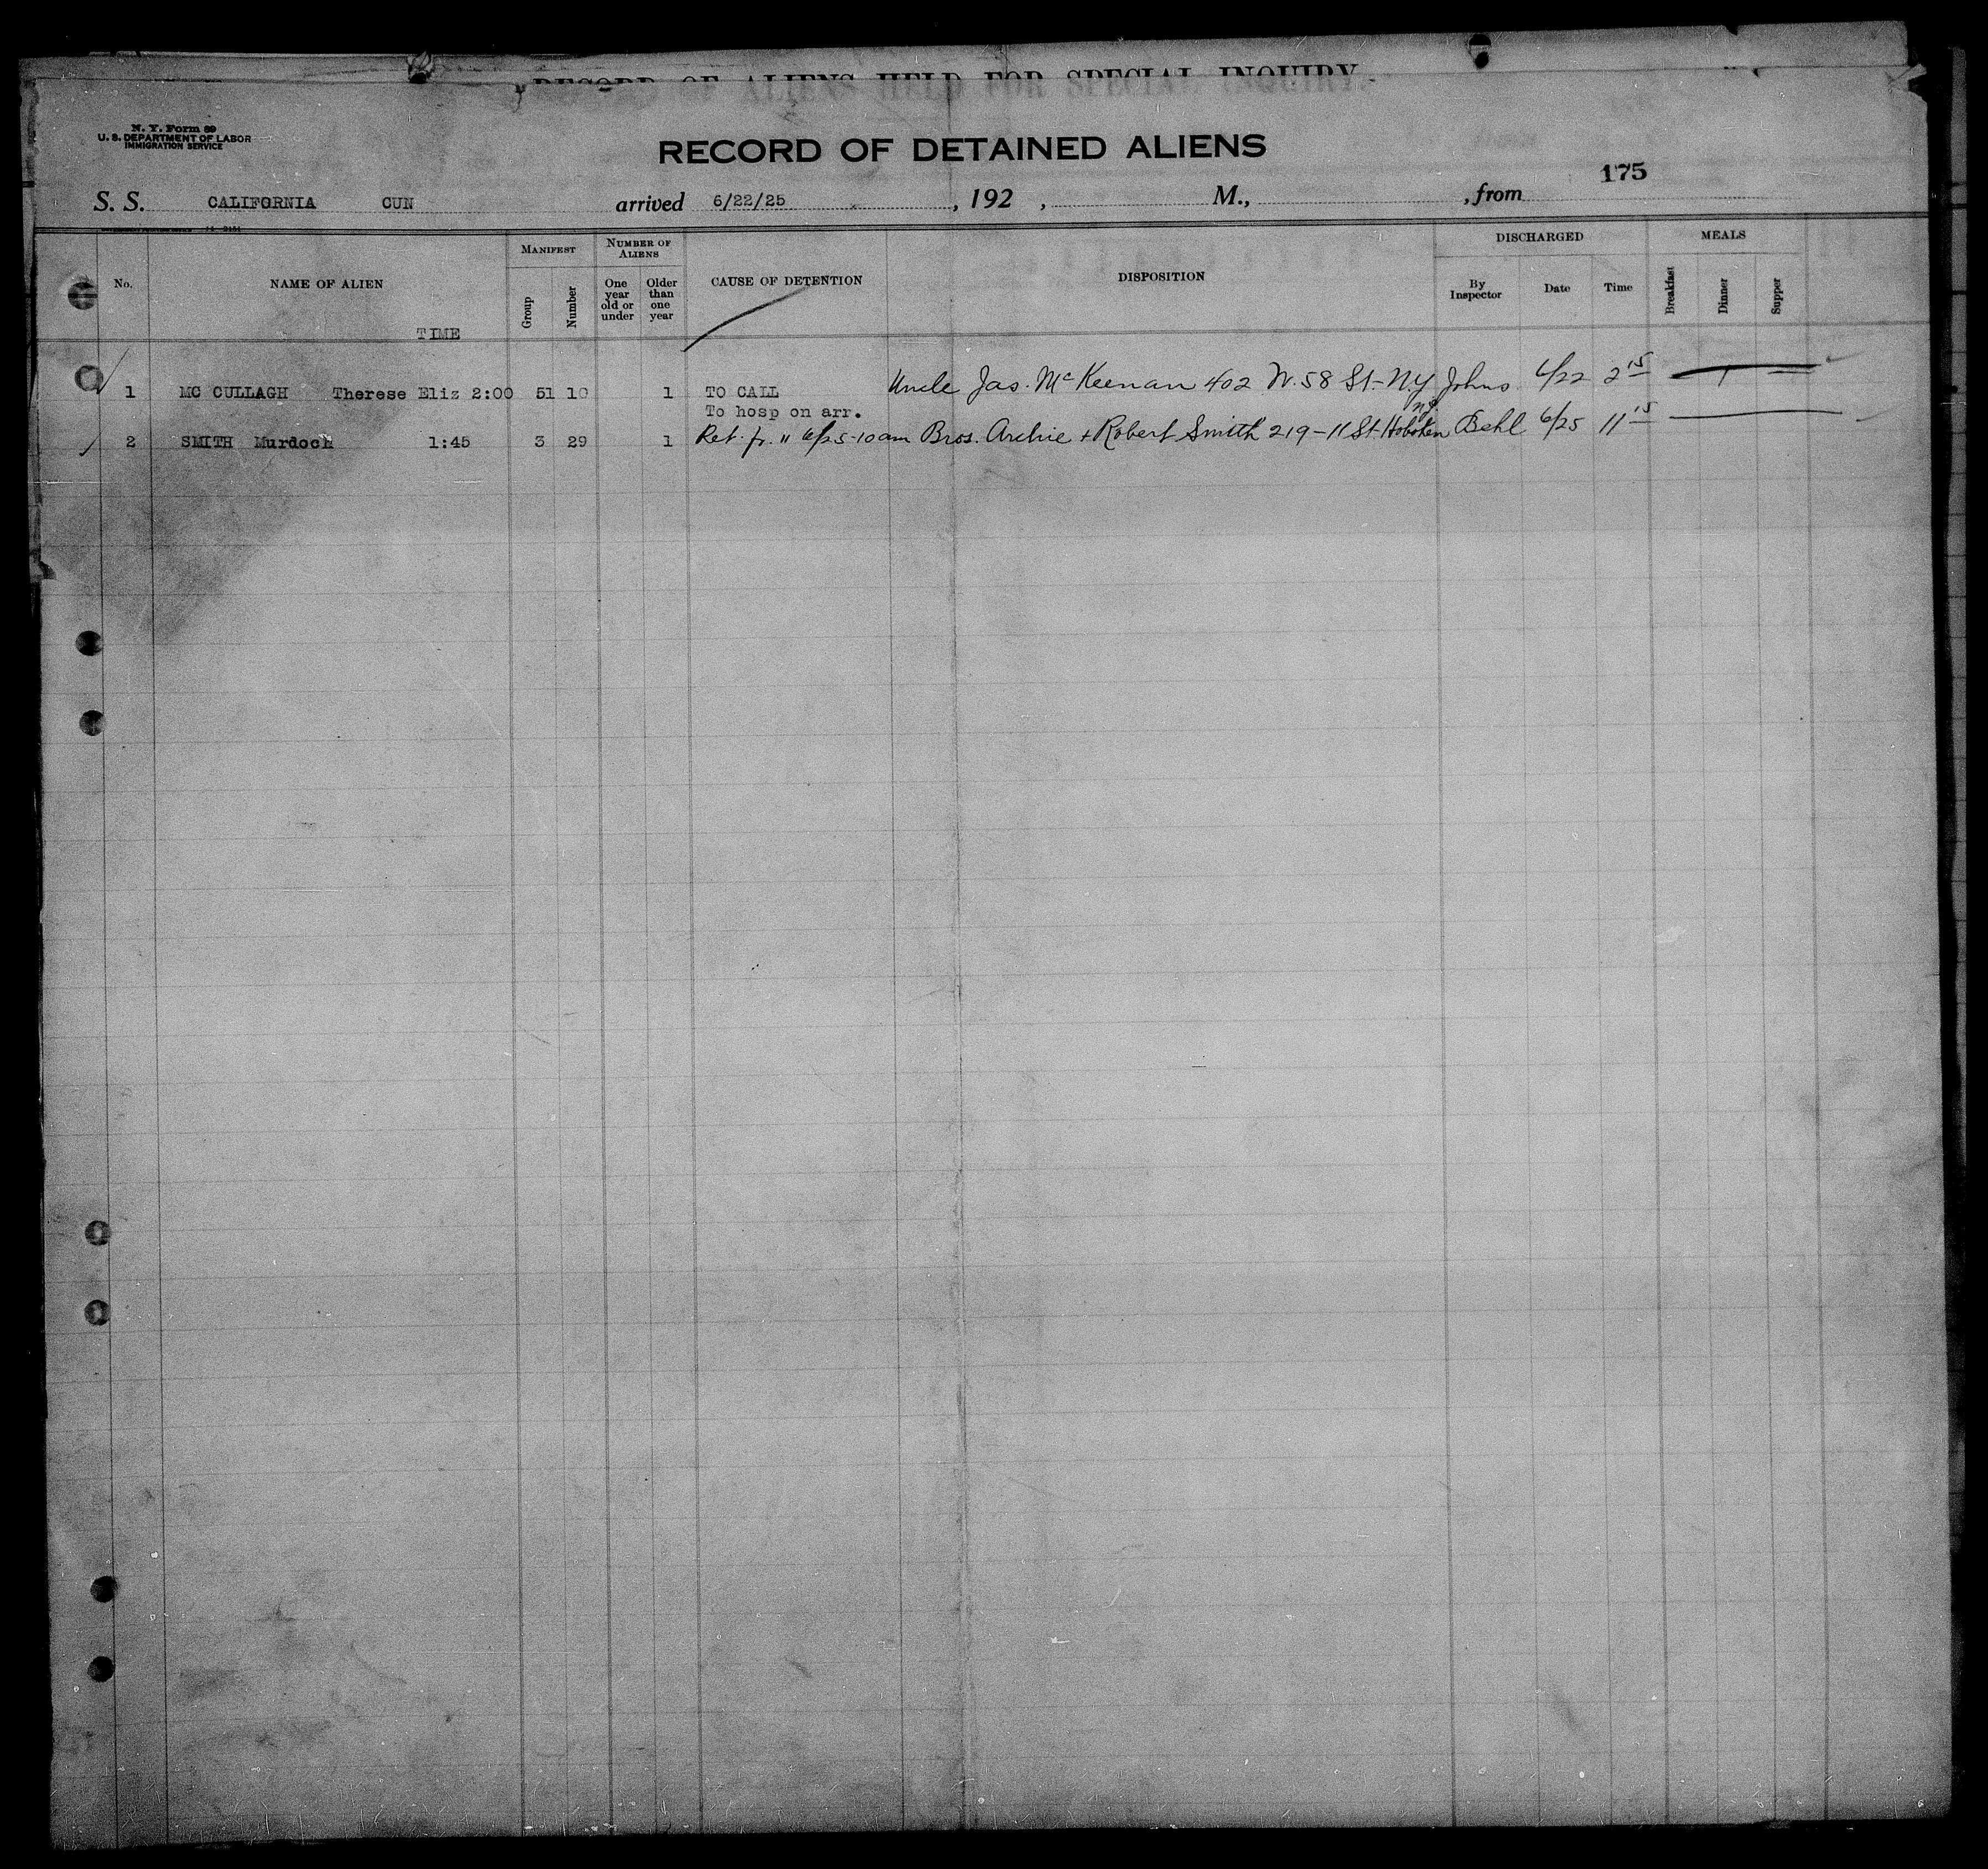 RECORD OF ALIENS HELD FOR SPECIAL INQUIRY.
N. Y. Form 89
U. S. DEPARTMENT OF LABOR
IMMIGRATION SERVICE
RECORD OF DETAINED ALIENS
175
S. S. CALIFORNIA CUN arrived 6/22/25 , 192 , M., , from
No. NAME OF ALIEN TIME MANIFEST Group Number NUMBER OF ALIENS One year old or under Older than one year CAUSE OF DETENTION DISPOSITION DISCHARGED By Inspector Date Time MEALS Breakfast Dinner Supper
1 MC CULLAGH Therese Eliz 2:00 51 10 1 TO CALL Uncle Jas. McKeenan 402 W. 58 St- N.Y Johns 6/22 2 15 1
To hosp on arr.
2 SMITH Murdoch 1:45 3 29 1 Ret. fr. " 6/25-10am Bros. Archie + Robert Smith 219-11 St. Hoboken NJ Behl 6/25 11 15